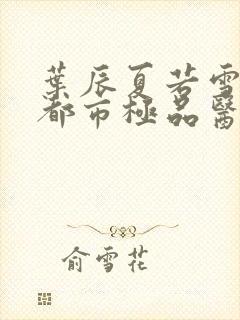 葉辰夏若雪
都市極品醫
俞雪花